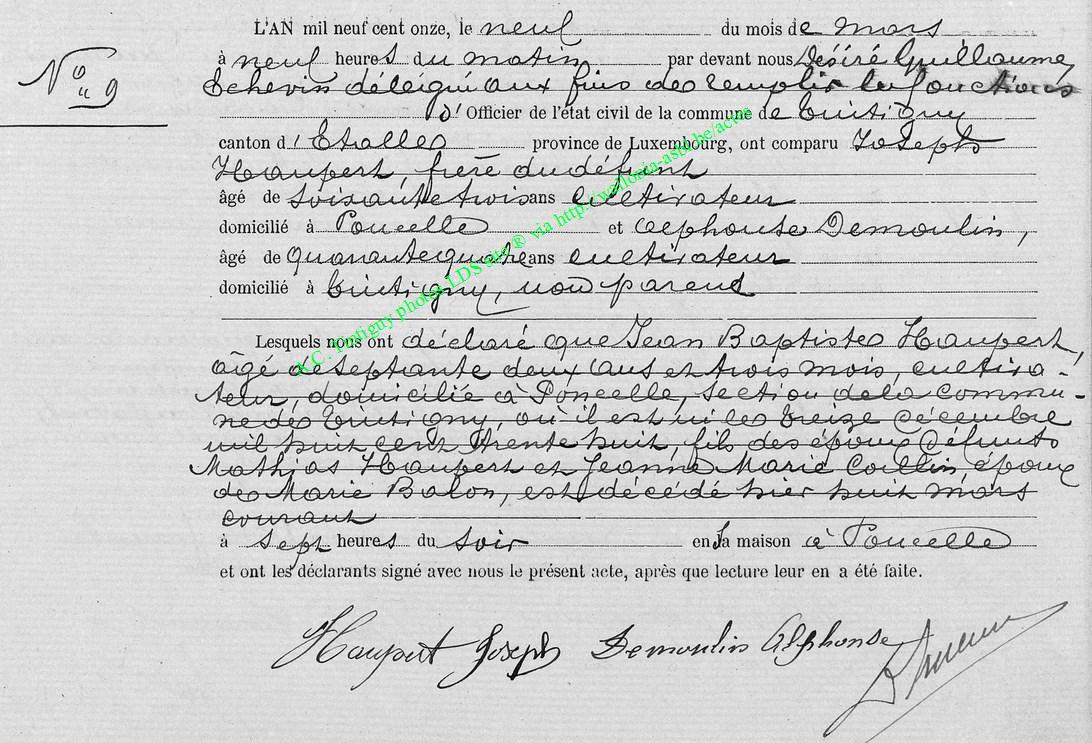 N° 9
L'AN mil neuf cent onze, le neuf du mois de mars
à neuf heures du matin par devant nous Désiré Guillaume,
Echevin délégué aux fins de remplir les fonctions
d' Officier de l'état civil de la commune de Tintigny
canton d'Etalle province de Luxembourg, ont comparu Joseph
Haupert, frère du défunt
âgé de soixante trois ans cultivateur
domicilié à Poncelle et Alphonse Demoulin,
âgé de Quarante quatre ans cultivateur
domicilié à Tintigny, non parent
Lesquels nous ont déclaré que Jean Baptiste Haupert,
âgé de septante deux ans et trois mois, cultiva-
teur, domicilié à Poncelle, section de la commu-
ne de Tintigny, où il est né le treize décembre
mil huit cent trente huit, fils des époux défunts
Mathias Haupert et Jeanne Marie Collin époux
de Marie Balon, est décédé hier huit mars
courant
à sept heures du soir en sa maison à Poncelle
et ont les déclarants signé avec nous le présent acte, après que lecture leur en a été faite.
Haupert Joseph Demoulin Alphonse
K.C. Tintigny photos LDS site ® via http://wallonia-asbl.be/actes